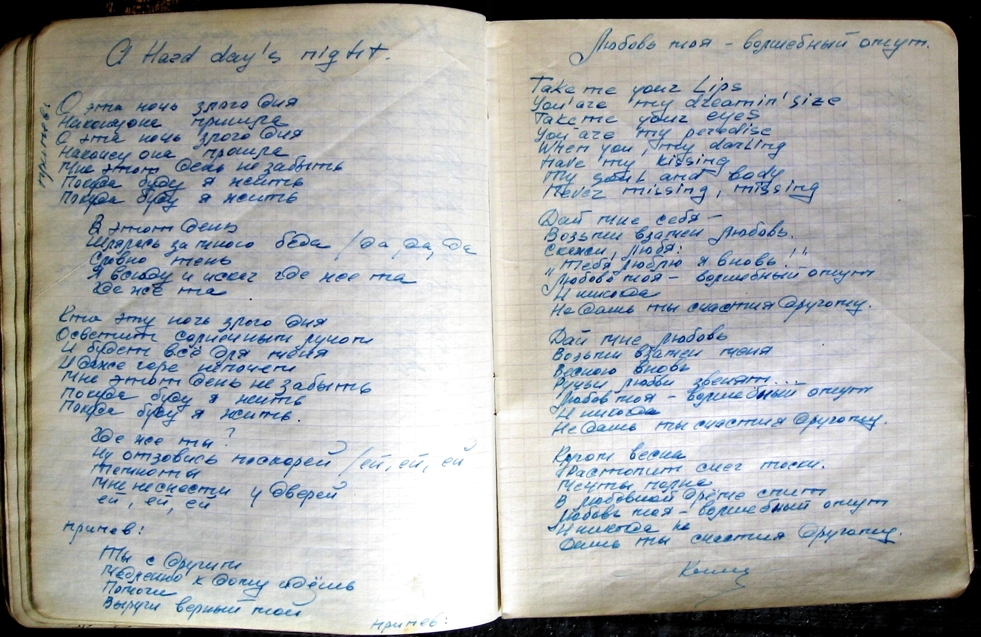 A Hard day's night.
припев:
О эта ночь злого дня
Наконец она пришла
О эта ночь злого дня
Наконец она прошла
Мне этот день не забыть
Покуда буду я жить
Покуда буду я жить
В этот день
за мною беда / да, да, да
Словно тень
Я всюду и ищу где же та
Где же та
Кто эту ночь злого дня
Осветит солнечным лучом
И будет всё для меня
И даже горе нипочем
Мне этот день не забыть
Покуда буду я жить
Покуда буду я жить.
Где же ты?
Ну отзовись поскорей / ей, ей, ей
Темноты
Мне не снести у дверей
ей, ей, ей
припев:
Ты с другим
Медленно к дому идёшь
Помоги
Выручи верный мой
припев:
Любовь твоя - волшебный омут.
Take me your Lips
You'are my dreamin' size
Take me your eyes
You'are my peredise
When you, my darling
Have my kissing
My soul and body
Never missing, missing
Дай мне себя -
Возьми взамен любовь.
Скажи, любя:
"Тебя люблю я вновь!"
Любовь твоя - волшебный омут
И никогда
Не дашь ты счастия другому.
Дай мне любовь
Возьми взамен меня
Весною вновь
Ручьи любви звенят...
Любовь твоя - волшебный омут
И никогда
Не дашь ты счастия другому.
весна
Растопит снег тоски.
Мечты полна
В любовной дрёме спит
Любовь твоя - волшебный омут
И никогда не
Дашь ты счастия другому.
Конец